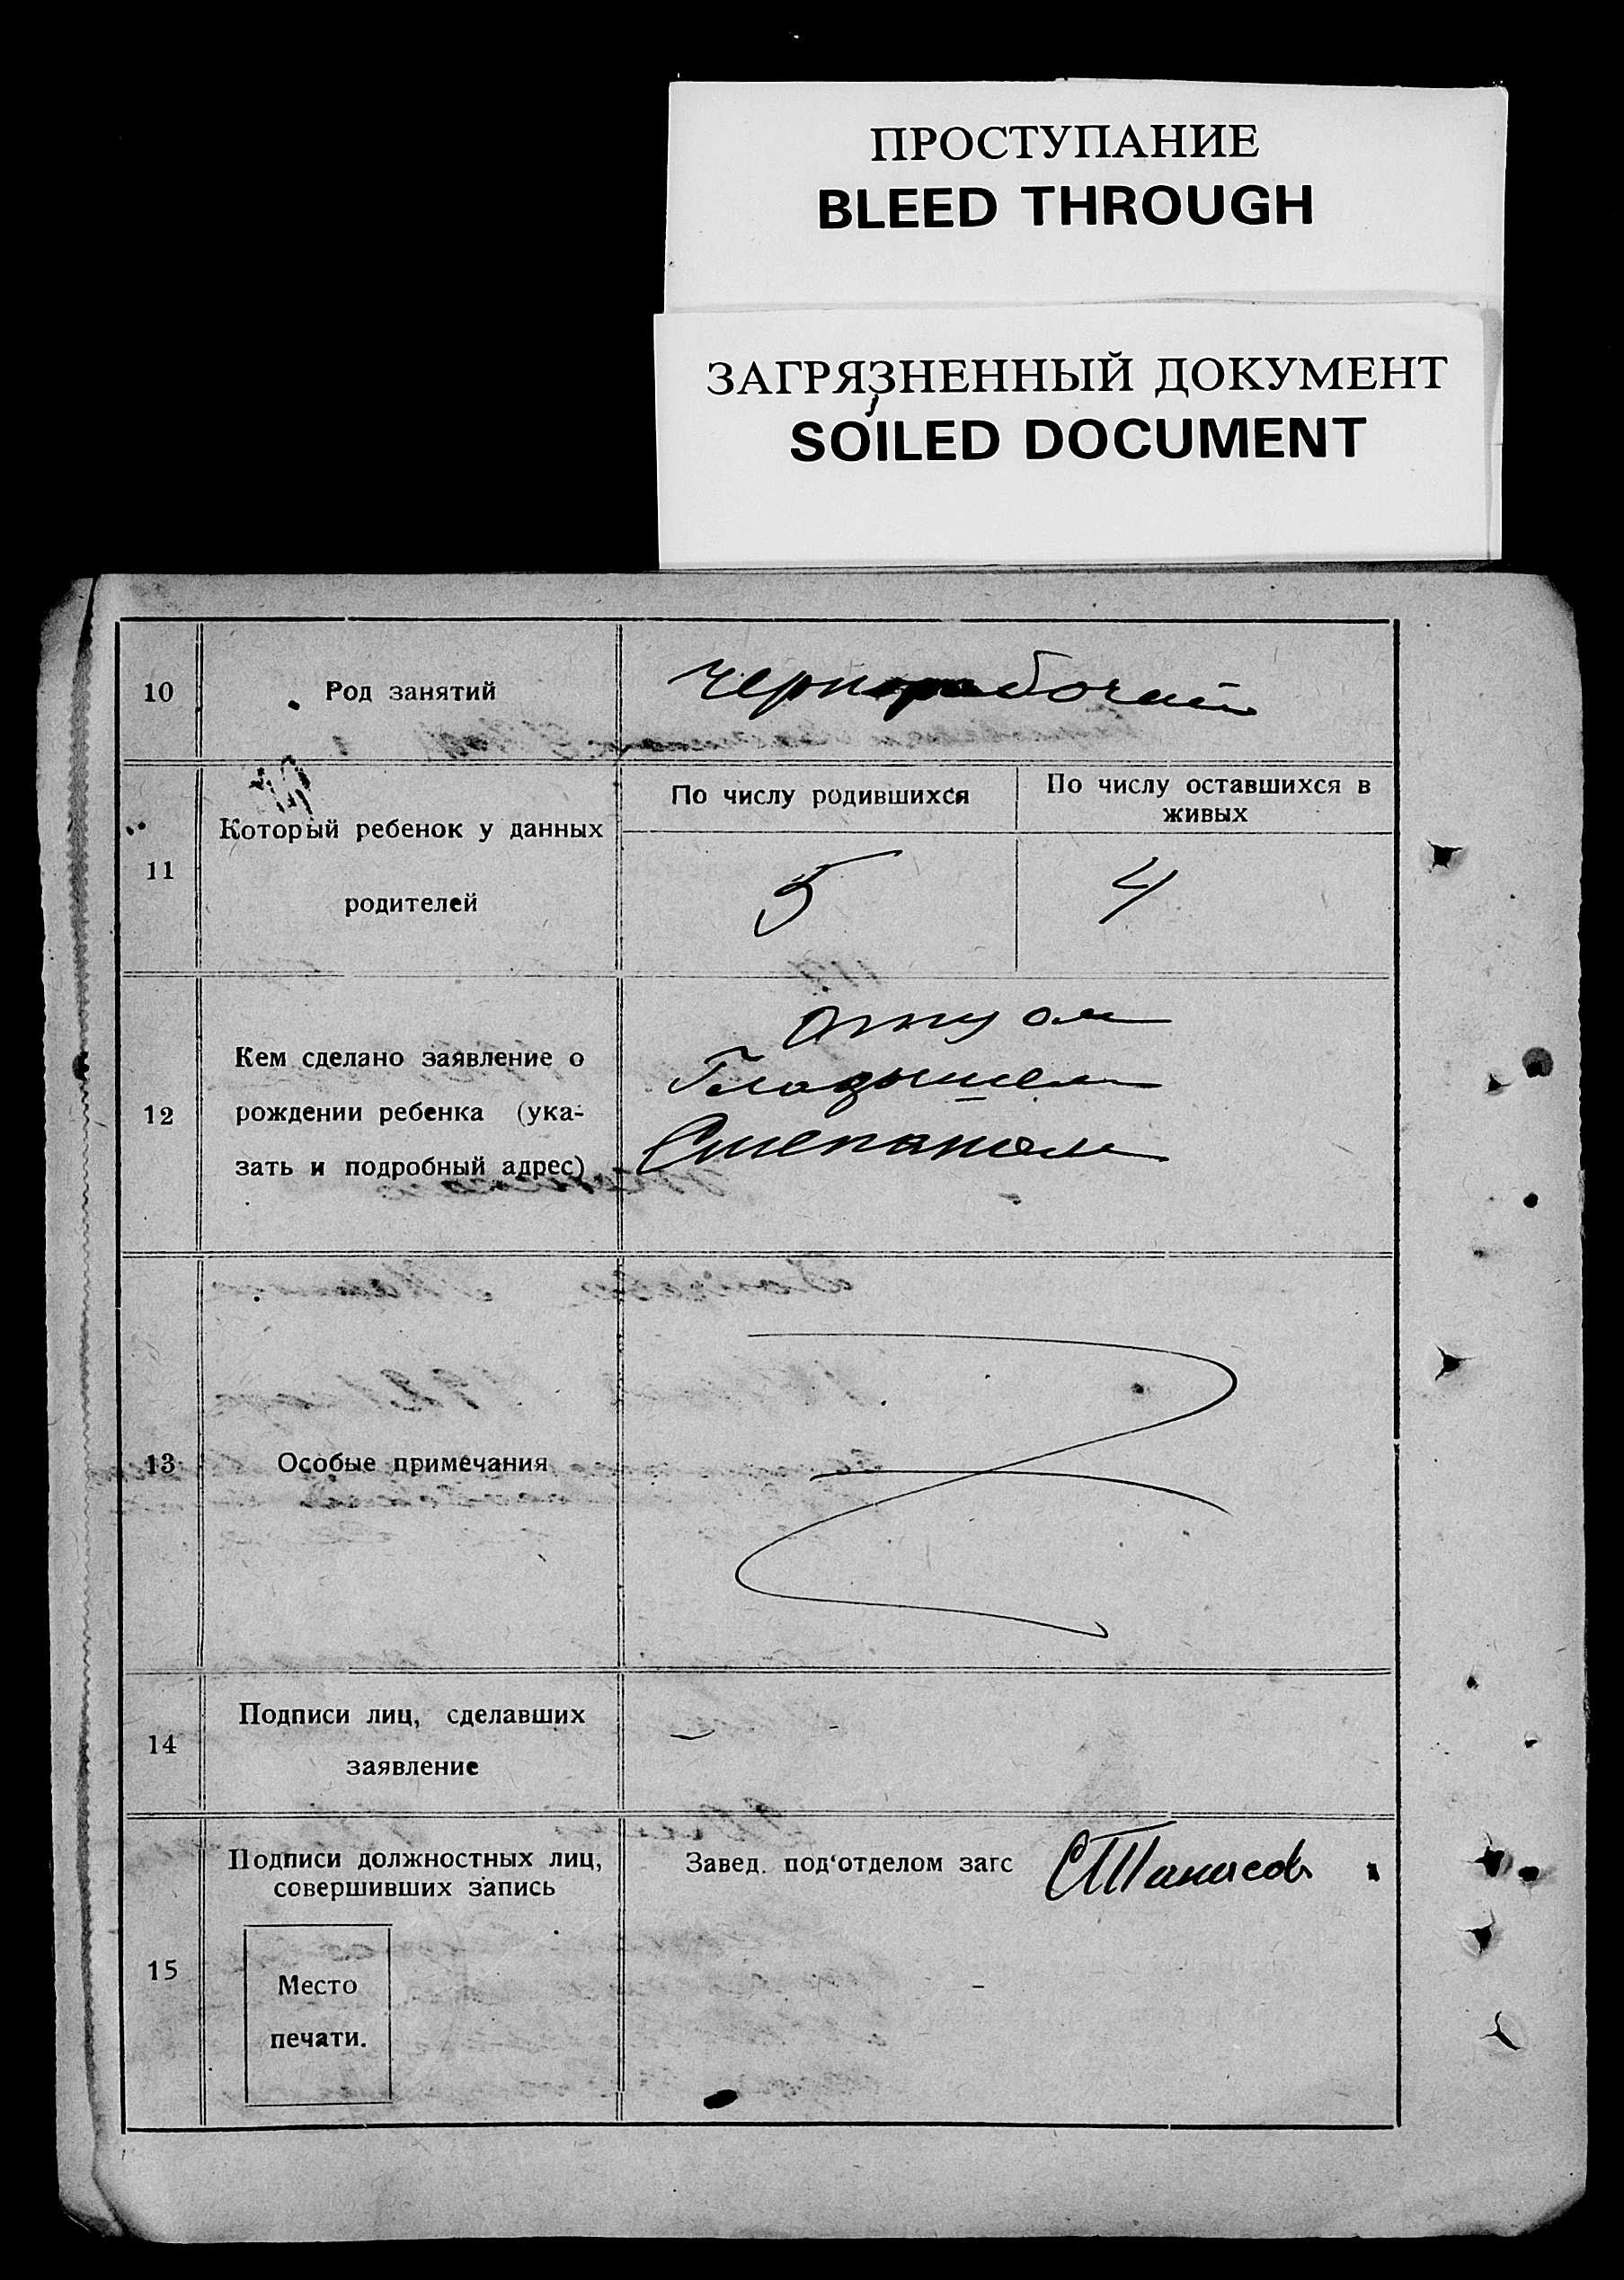 ПРОСТУПАНИЕ
BLEED THROUGH
ЗАГРЯЗНЕННЫЙ ДОКУМЕНТ
SOILED DOCUMENT
10 Род занятий чернорабочий
11 Который ребенок у данных родителей
По числу родившихся
По числу оставшихся в живых
5 4
12 Кем сделано заявление о
рождении ребенка (ука-
зать и подробный адрес)
отцом
Степаном
13 Особые примечания
14 Подписи лиц, сделавших
заявление
15 Подписи должностных лиц,
совершивших запись
Завед. под‘отделом загс
Место
печати.